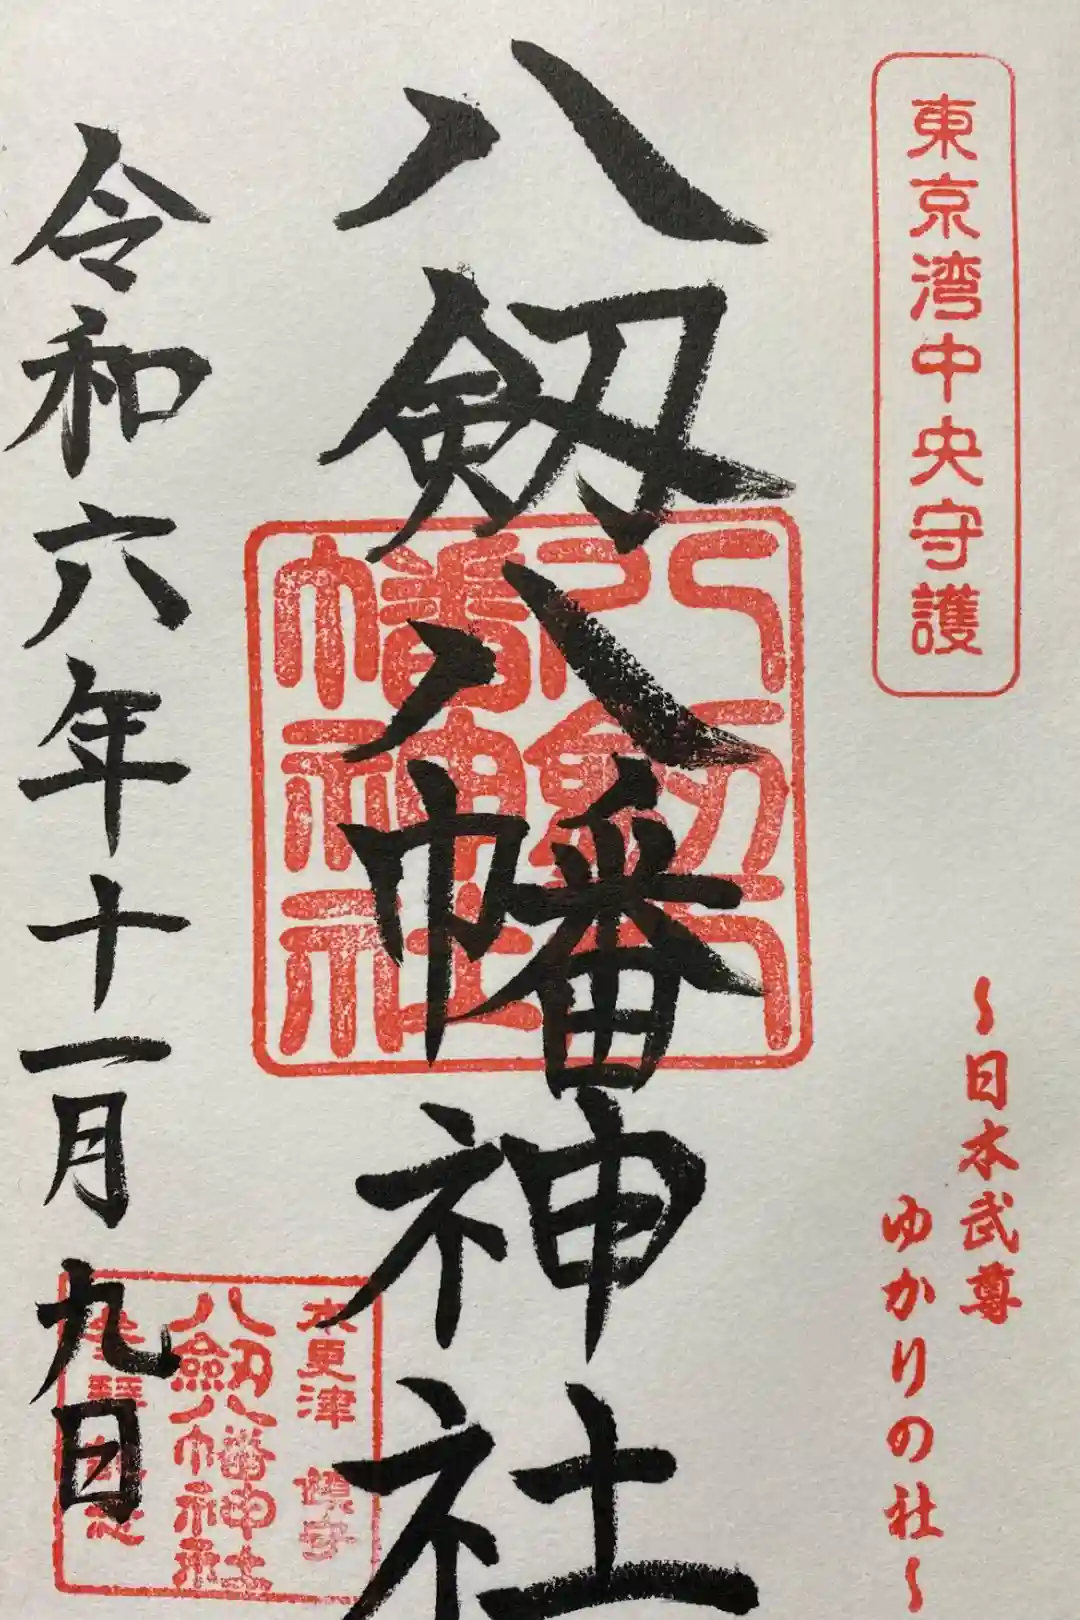 東京湾中央守護
〜日本武尊
ゆかりの社〜
八剱八幡神社
八剱八幡神社
木更津 鎮守
八劔八幡神社
参拝記念
令和六年十一月九日